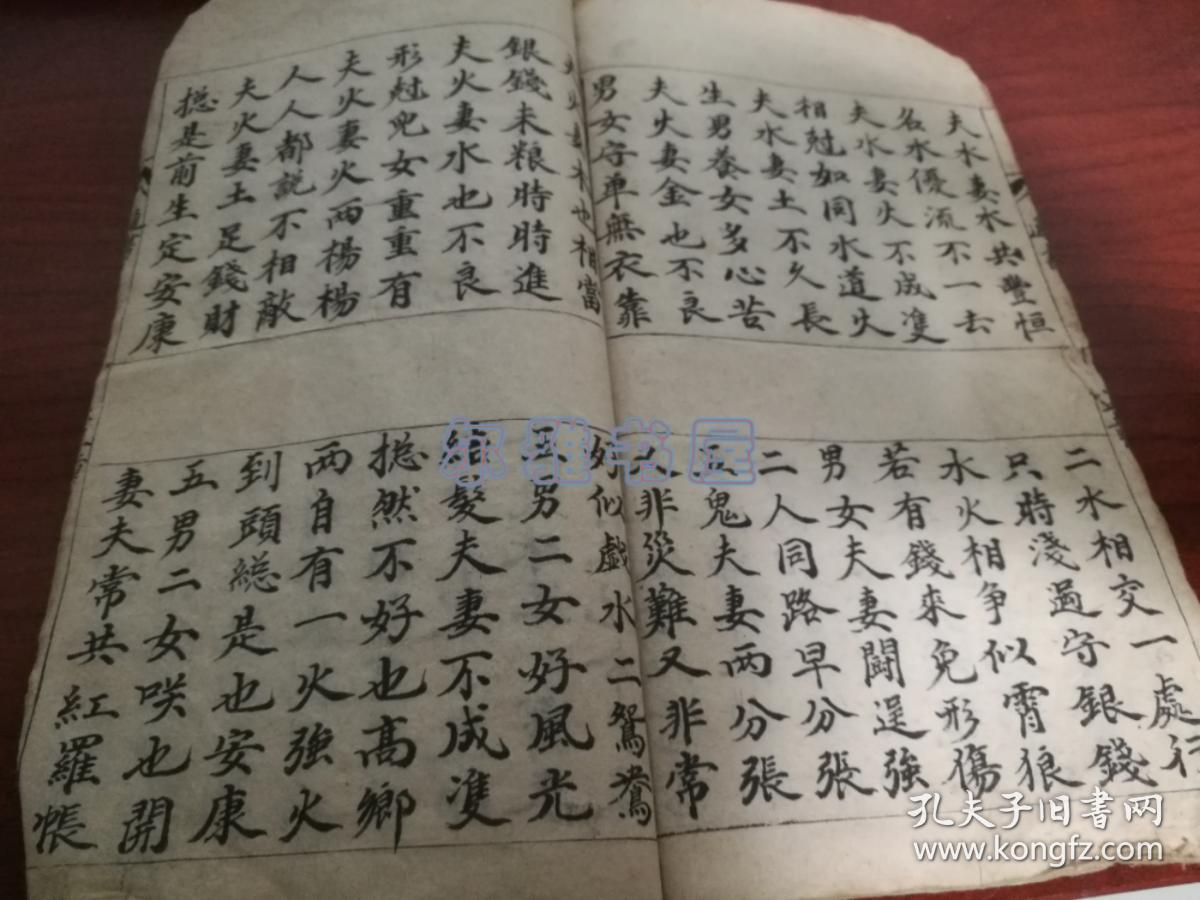 夫水妻水共豐恒
名水優流不一去
夫水妻火不成雙
相尅如同水道火
夫水妻土不久長
生男養女多心苦
夫火妻金也不良
男女守單無衣靠
也相當
銀錢未粮時時進
夫火妻水也不良
形尅兒女重重有
夫火妻火兩楊楊
人人都説不相敵
夫火妻土足錢財
捴是前生定安康
二水相交一處行
只時淺過守銀錢
水火相爭似霄狼
若有錢來免形傷
男女夫妻鬪逞強
二人同路早分張
五鬼夫妻兩分張
人非災難又非常
好似戲水二鴛鴦
五男二女好風光
結髮夫妻不成雙
捴然不好也高鄉
兩自有一火強火
到頭緫是也安康
五男二女咲也開
妻夫常共紅羅帳
尔雅书屋
孔夫子旧书网
www.kongfz.com